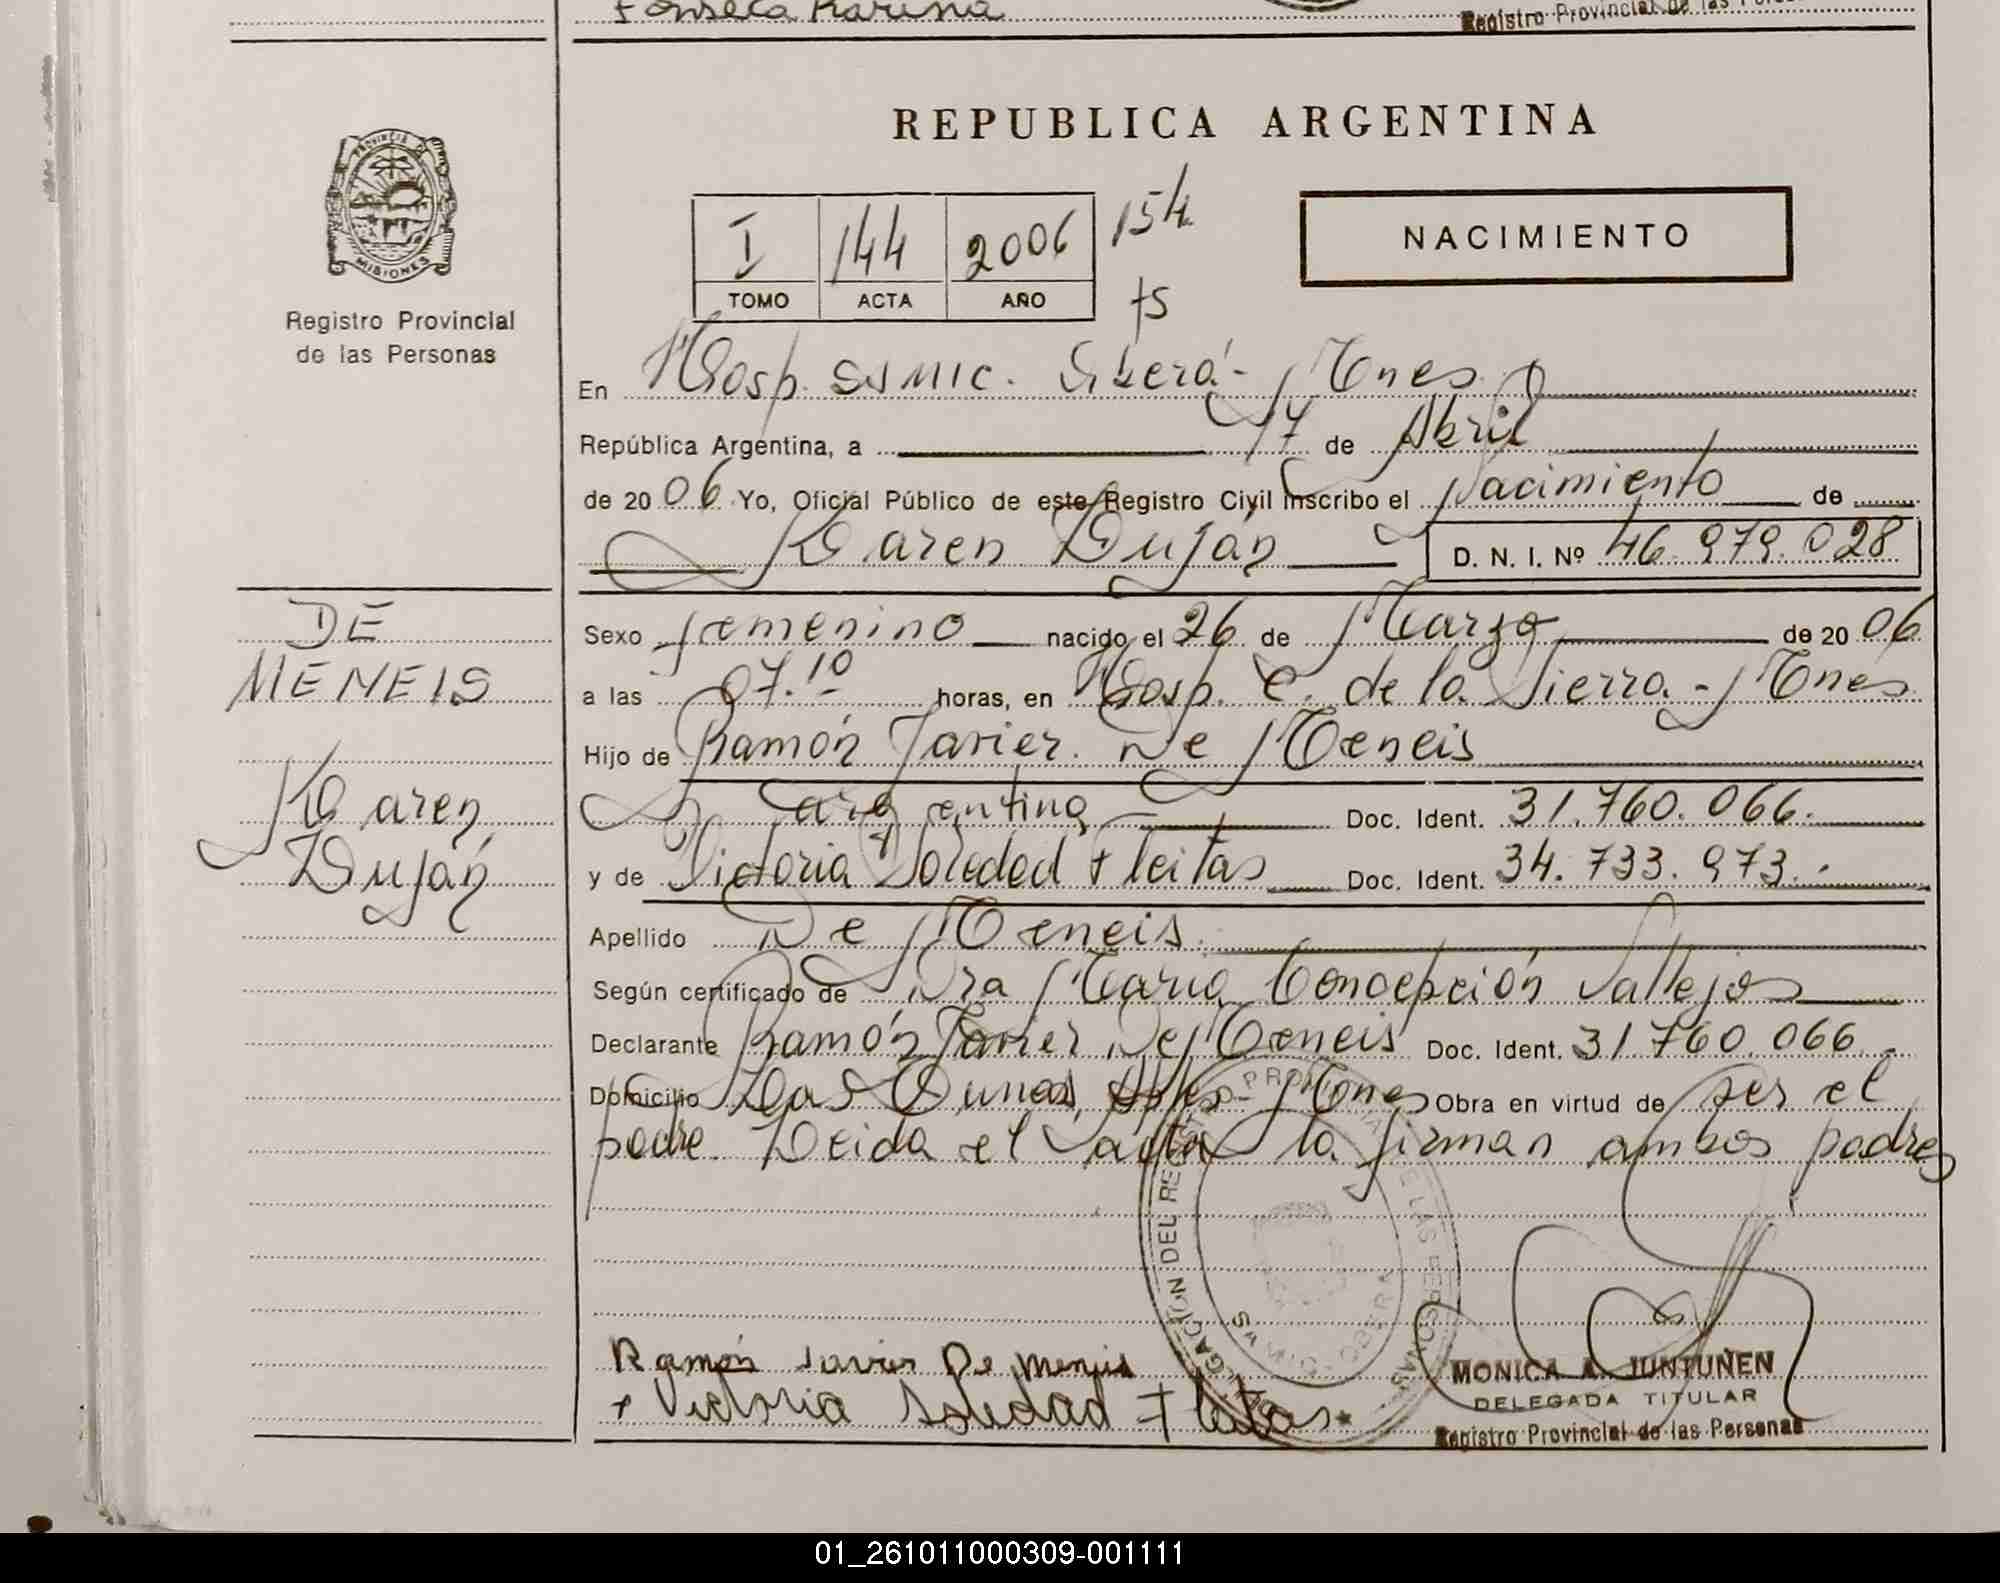 Fonseca Karina
Registro Provincial de las Personas
PROVINCIA DE
MISIONES
Registro Provincial
de las Personas
REPUBLICA ARGENTINA
I 144 2006 154
TOMO ACTA AÑO
fs
NACIMIENTO
En Hosp. SAMIC. Oberá - Mnes
República Argentina, a 17 de Abril
de 2006 Yo, Oficial Público de este Registro Civil inscribo el Nacimiento de
Karen Luján D. N. I. Nº 46.979.028
DE
MENEIS
Karen
Luján
Sexo femenino nacido el 26 de Marzo de 2006
a las 07.10 horas, en Hosp. C. de la Sierra - Mnes
Hijo de Ramón Javier De Meneis
argentina Doc. Ident. 31.760.066.
y de Victoria Soledad Fleitas Doc. Ident. 34.733.973.-
Apellido De Meneis
Según certificado de Dra María Concepción Vallejos
Declarante Ramón Javier De Meneis Doc. Ident. 31.760.066.-
Domicilio Las Dunas, Mnes Obra en virtud de ser el
padre. Leida el acta la firman ambos padres
DELEGACION DEL REGISTRO PROVINCIAL DE LAS PERSONAS
OBERA
Ramón Javier De Meneis
+ Victoria Soledad Fleitas
MONICA A. JUNTUNEN
DELEGADA TITULAR
Registro Provincial de las Personas
01_261011000309-001111